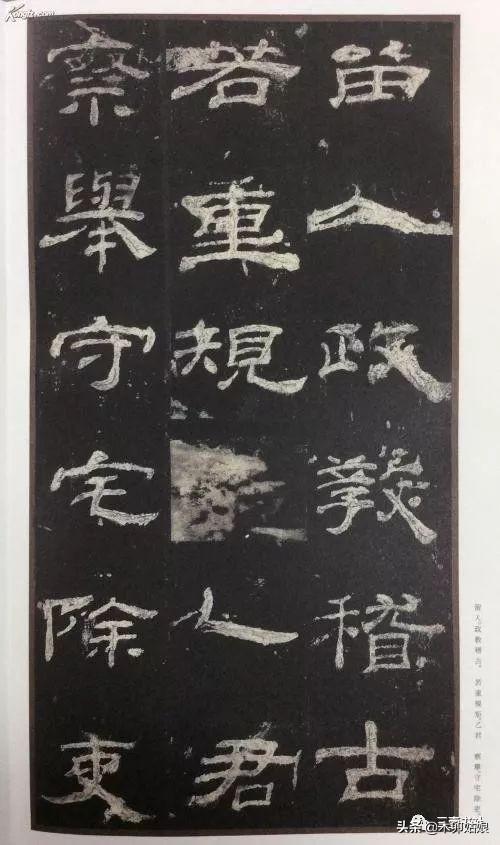 留人政教稽古
若重規乙君
察舉守宅除吏
留人。政教稽古。若重規矩。乙君 察舉守宅除吏
头条@未卯姑娘